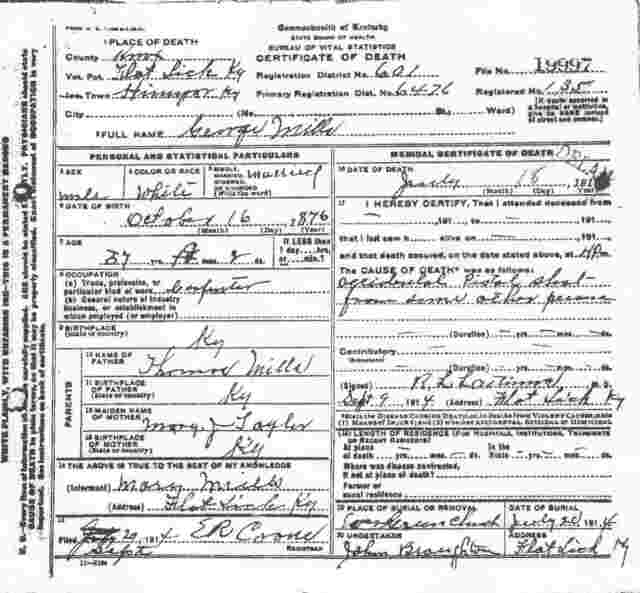 Commonwealth of Kentucky
STATE BOARD OF HEALTH
BUREAU OF VITAL STATISTICS
CERTIFICATE OF DEATH
1 PLACE OF DEATH
County Knox
Vot. Pct. Flat Lick Ky Registration District No. 601 File No. 19997
Inc. Town Ky Primary Registration Dist. No. 6476 Registered No. 135
City (No. St. Ward)
[If death occurred in a hospital or institution, give its NAME instead of street and number.]
2 FULL NAME George Mills
PERSONAL AND STATISTICAL PARTICULARS
3 SEX male
4 COLOR OR RACE White
5 SINGLE, MARRIED, WIDOWED OR DIVORCED (Write the word) Married
6 DATE OF BIRTH
October 16 1876
(Month) (Day) (Year)
7 AGE
37 yrs. mos. 2 ds.
If LESS than 1 day, hrs. or min.?
8 OCCUPATION
(a) Trade, profession, or particular kind of work Carpenter
(b) General nature of industry business, or establishment in which employed (or employer)
9 BIRTHPLACE
(State or country) Ky
PARENTS
10 NAME OF FATHER Thomas Mills
11 BIRTHPLACE OF FATHER (State or country) Ky
12 MAIDEN NAME OF MOTHER Mary J Taylor
13 BIRTHPLACE OF MOTHER (State or country) Ky
14 THE ABOVE IS TRUE TO THE BEST OF MY KNOWLEDGE
(Informant) Mary Mills
(Address) Flat Lick Ky
15
Filed Sept 29 1914 REGISTRAR
MEDICAL CERTIFICATE OF DEATH
16 DATE OF DEATH
July 18, 191
(Month) (Day) (Year)
17 I HEREBY CERTIFY, That I attended deceased from
191 to 191
that I last saw h alive on 191
and that death occurred, on the date stated above, at M.
The CAUSE OF DEATH* was as follows:
accidental Pistol shot
from some other person
(Duration) yrs. mos. ds.
Contributory
(Duration) yrs. mos. ds.
(Signed) M. D.
Sept 9 1914 (Address) Flat Lick Ky
*State the DISEASE CAUSING DEATH, or, in deaths from VIOLENT CAUSES, state (1) MEANS OF INJURY; and (2) whether ACCIDENTAL, SUICIDAL or HOMICIDAL
18 LENGTH OF RESIDENCE (FOR HOSPITALS, INSTITUTIONS, TRANSIENTS OR RECENT RESIDENTS)
At place of death yrs. mos. ds. In the State yrs. mos. ds.
Where was disease contracted,
if not at place of death?
Former or
usual residence
19 PLACE OF BURIAL OR REMOVAL DATE OF BURIAL
July 20, 1914
20 UNDERTAKER ADDRESS
John Broughton Flat Lick Ky
WRITE PLAINLY, WITH UNFADING INK—THIS IS A PERMANENT RECORD